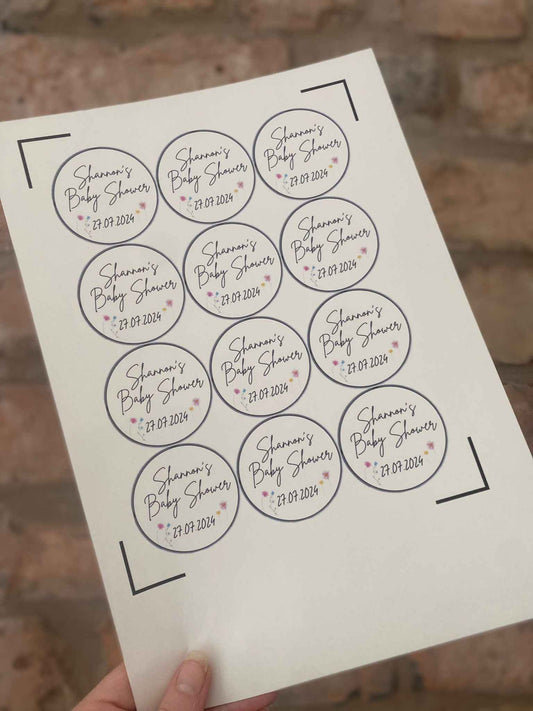 Shannon's
Baby Shower
27.07.2024
Shannon's
Baby Shower
27.07.2024
Shannon's
Baby Shower
27.07.2024
Shannon's
Baby Shower
27.07.2024
Shannon's
Baby Shower
27.07.2024
Shannon's
Baby Shower
27.07.2024
Shannon's
Baby Shower
27.07.2024
Shannon's
Baby Shower
27.07.2024
Shannon's
Baby Shower
27.07.2024
Shannon's
Baby Shower
27.07.2024
Shannon's
Baby Shower
27.07.2024
Shannon's
Baby Shower
27.07.2024